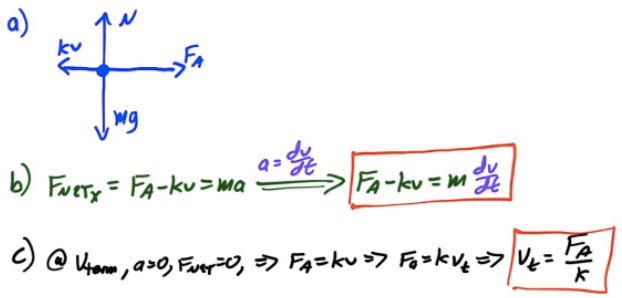 a)
N
kv
F_A
mg
b) F_NET_x = F_A - kv = ma  a = dv/dt ⟹ F_A - kv = m dv/dt
c) @ V_term, a=0, F_NET=0, ⇒ F_A = kv ⇒ F_A = kv_t ⇒ V_t = F_A/K